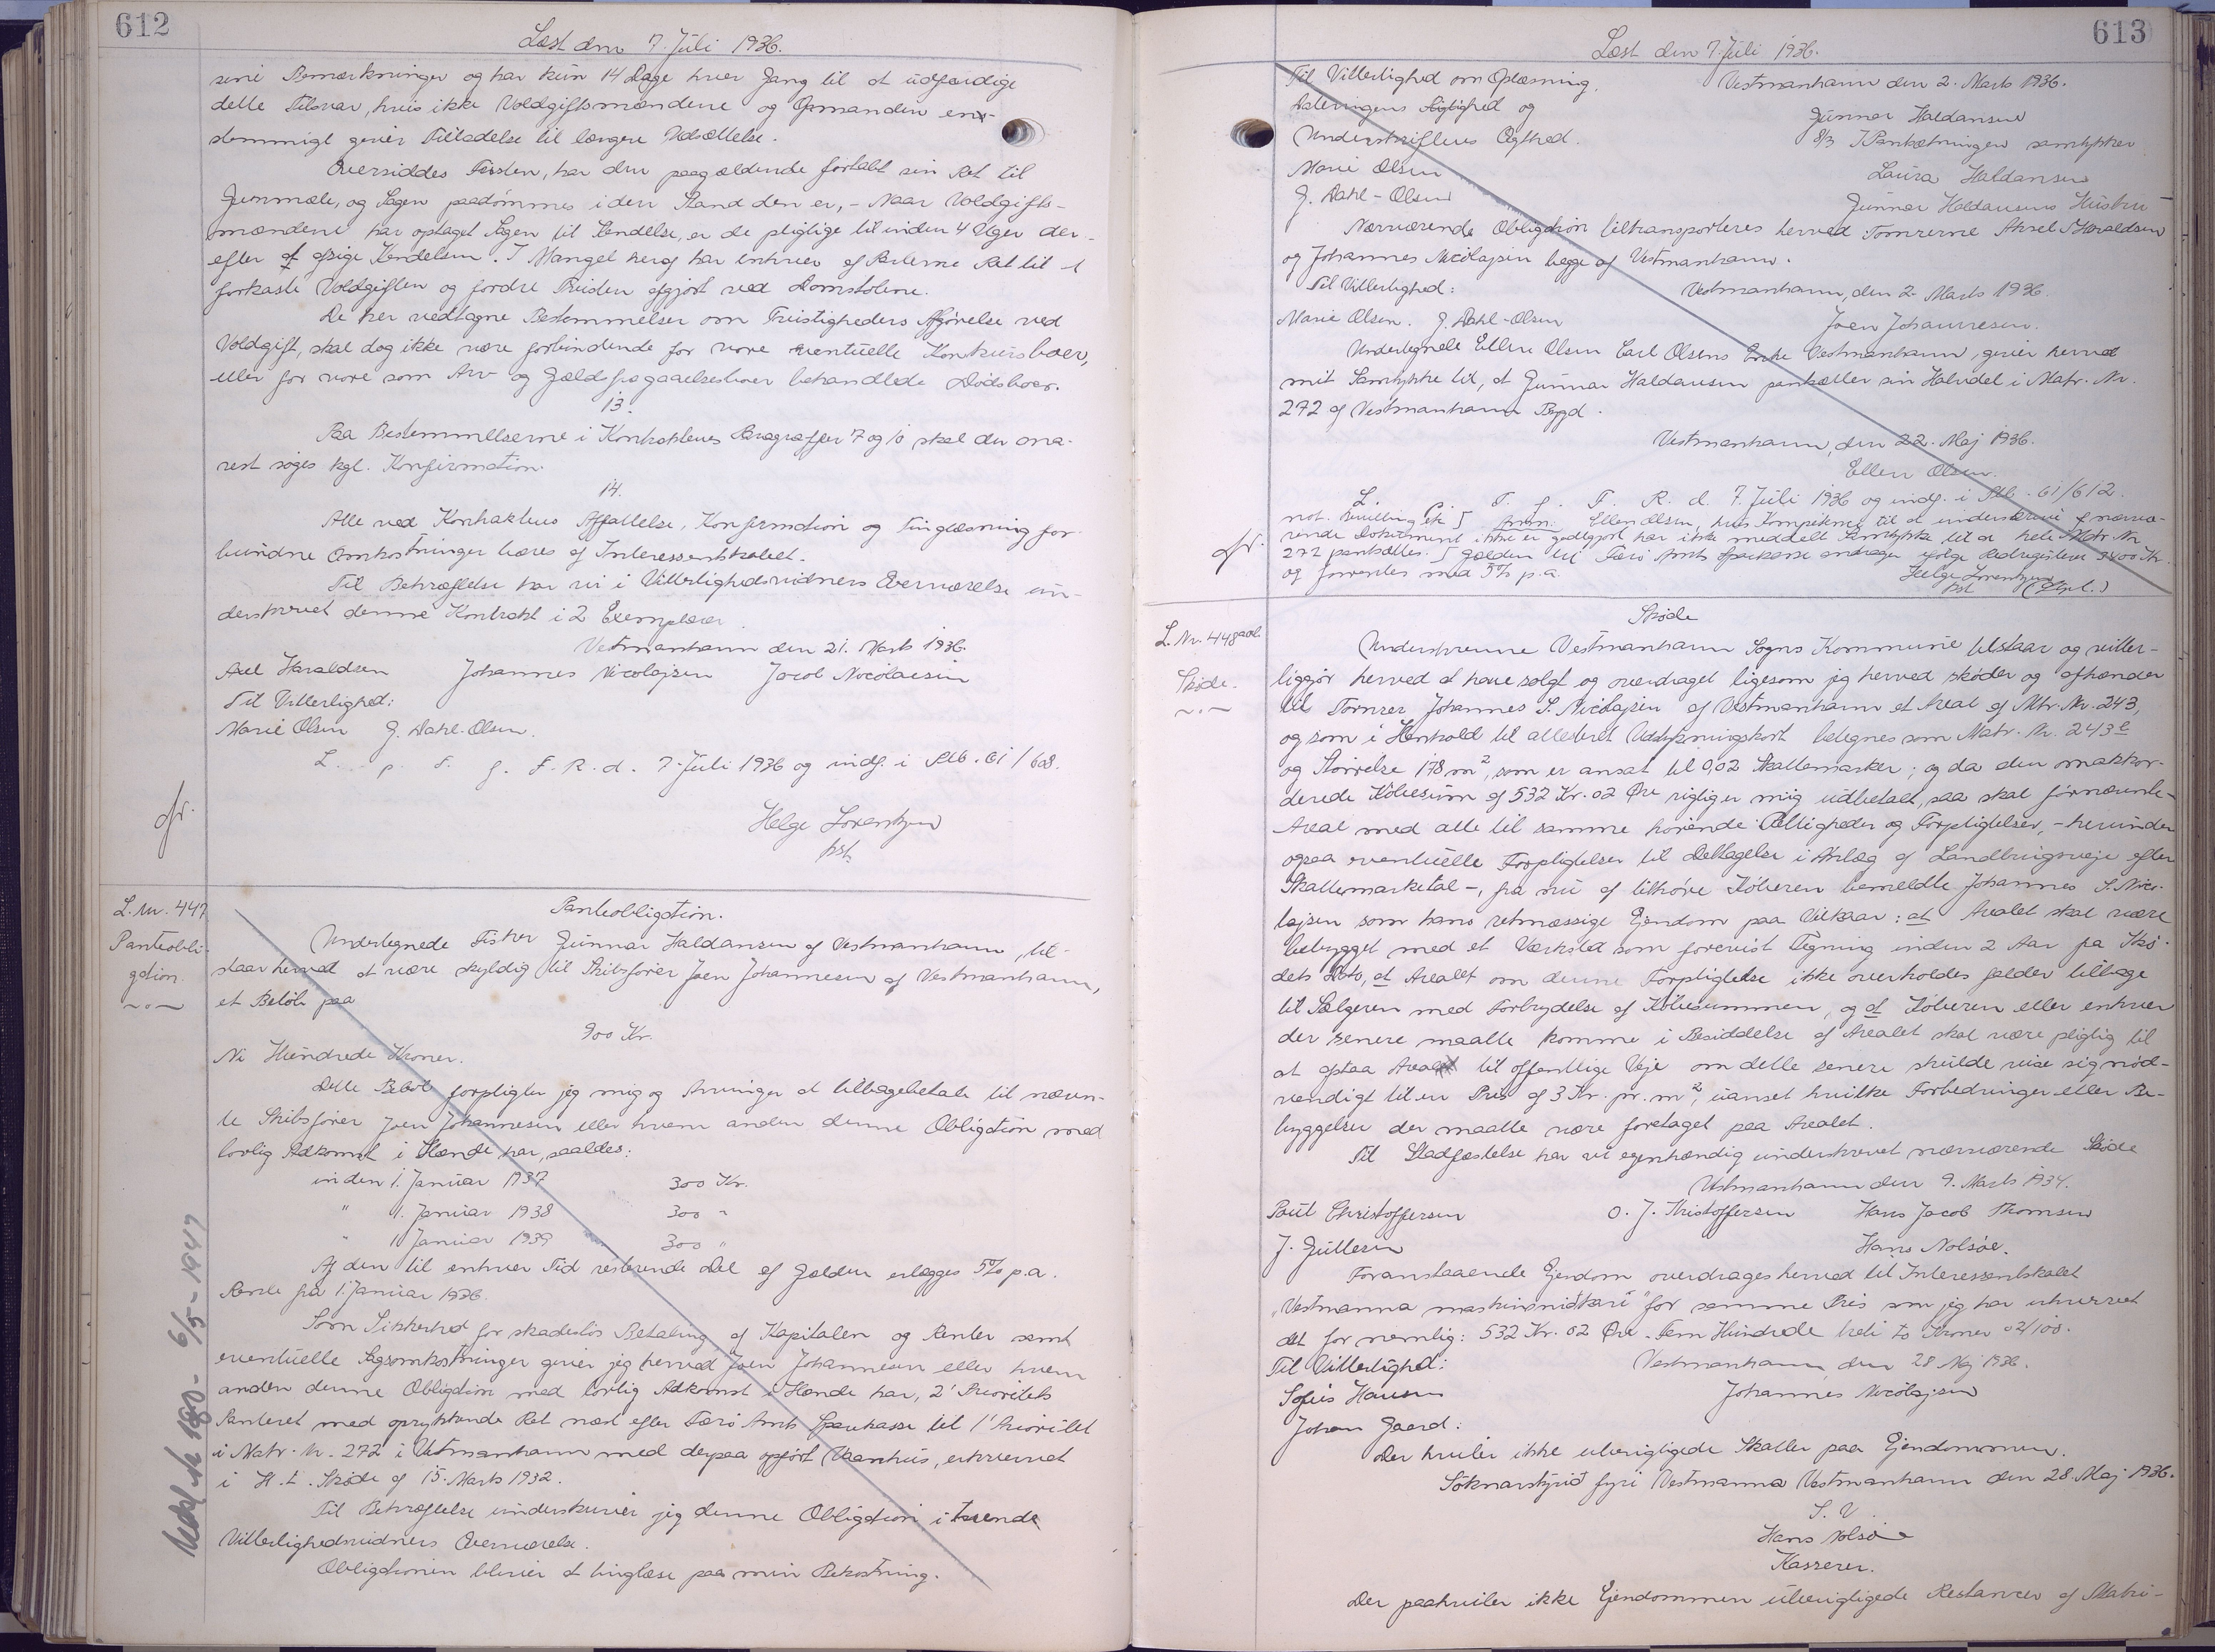 612
Læst den 7. Juli 1936.
sine Bemærkninger og har kun 14 Dage hver Gang til at udfærdige
dette Tilsvar, hvis ikke Voldgiftsmændene og Opmanden en-
stemmigt giver Tilladelse til længere Udsættelse.
Oversiddes Fristen, har den paagældende fortabt sin Ret til
Genmæle, og Sagen paadömmes i den Stand den er, - Naar Voldgifts-
mændene har optaget Sagen til Kendelse, er de pligtige til inden 4 Uger der-
efter at afsige Kendelsen. I Mangel heraf har enhver af Parterne Ret til at
forkaste Voldgiften og fordre Tvisten afgjort ved Domstolene.
De her vedtagne Bestemmelser om Tvistigheders Afgörelse ved
Voldgift, skal dog ikke være forbindende for vore eventuelle Konkursboer,
eller for vore som Arv og Gældsfragaaelsesboer behandlede Dödsboer.
13.
Paa Bestemmelserne i Kontraktens Paragraffer 7 og 10 skal der sna-
rest söges kgl. Konfirmation.
14.
Alle ved Kontraktens Affattelse, Konfirmation og Tinglæsning for-
bundne Omkostninger bæres af Interessentskabet.
Til Bekræftelse har vi i Vitterlighedsvidners Overværelse un-
derskrevet denne Kontrakt i 2 Exemplarer.
Vestmanhavn den 21. Marts 1936.
Axel Haraldsen Johannes Nicolajsen Jacob Nicolaisen
Til Vitterlighed:
Marie Olsen G. Dahl-Olsen.
L. p. S. f. F. R. d. 7. Juli 1936 og indf. i Sktb. 61/608.
Helge Lorentzen
kst.
L. Nr. 447
Panteobli-
gation.
Panteobligation.
Undertegnede Fisker Gunnar Haldansen af Vestmanhavn, til-
staar herved at være skyldig til Skibsförer Joen Johannesen af Vestmanhavn,
et Belöb paa
900 Kr.
Ni Hundrede Kroner.
Dette Belöb forpligter jeg mig og Arvinger at tilbagebetale til nævn-
te Skibsförer Joen Johannesen eller hvem anden denne Obligation med
lovlig Adkomst i Hænde har, saaledes:
inden 1. Januar 1937 300 Kr.
" 1. Januar 1938 300 "
" 1. Januar 1939 300 "
Af den til enhver Tid resterende Del af Gælden erlægges 5% p.a.
Rente fra 1. Januar 1936.
Som Sikkerhed for skadeslös Betaling af Kapitalen og Renter samt
eventuelle Sagsomkostninger giver jeg herved Joen Johannesen eller hvem
anden denne Obligation med lovlig Adkomst i Hænde har, 2' Prioritets
Panteret med oprykkende Ret næst efter Færö Amts Sparekasse til 1' Prioritet
i Matr. Nr. 272 i Vestmanhavn med derpaa opfört Vaanhus, erhvervet
i H. t. Sköde af 15. Marts 1932.
Til Bekræftelse underskriver jeg denne Obligation i tvende
Vitterlighedsvidners Overværelse.
Obligationen bliver at tinglæse paa min Bekostning.
6/5-1947
613
Læst den 7. Juli 1936.
Til Vitterlighed om Oplæsning, Vestmanhavn den 2. Marts 1936.
Dateringens Rigtighed og
Gunnar Haldansen
Underskriftens Ægthed.
I Pantsætningen samtykker
Marie Olsen
Laura Haldansen
G. Dahl-Olsen
Gunnar Haldansens Hustru
Nærværende Obligation tiltransporteres herved Tömrerne Aksel Haraldsen
og Johannes Nicolajsen begge af Vestmanhavn.
Til Vitterlighed: Vestmanhavn, den 2. Marts 1936.
Marie Olsen. G. Dahl-Olsen Joen Johannesen.
Undertegnede Ellen Olsen Carl Olsens Enke Vestmanhavn, giver herved
mit Samtykke til, at Gunnar Haldansen pantsætter sin Halvdel i Matr. Nr.
272 af Vestmanhavn Bygd.
Vestmanhavn, den 22. Maj 1936.
Ellen Olsen.
L. p. T. f. F. R. d. 7. Juli 1936 og indf. i Sktb. 61/612.
Anm. Ellen Olsen, hvis Kompetence til at underskrive nærvæ-
rende Dokument ikke er godtgjort har ikke meddelt Samtykke til at hele Matr. Nr.
272 pantsættes. Gælden til Færö Amts Sparekasse andrager ifölge Realregisteret 3400 Kr.
og forrentes med 5% p.a.
Helge Lorentzen
kst
L. Nr. 448
Sköde.
Sköde
Underskrevne Vestmanhavn Sogns Kommune tilstaar og vitter-
liggjör herved at have solgt og overdraget ligesom jeg herved sköder og afhænder
til Tömrer Johannes S. Nicolajsen af Vestmanhavn et Areal af Mtr. Nr. 243,
og som i Henhold til attesteret Udstykningskort betegnes som Matr. Nr. 243e
og Störrelse 178 m², som er ansat til 0,02 Skattemarker; og da den omakkor-
derede Köbesum af 532 Kr. 02 Öre rigtig er mig udbetalt, saa skal förnævnte
Areal med alle til samme hörende Rettigheder og Forpligtelser, - herunder
ogsaa eventuelle Forpligtelser til Deltagelse i Anlæg af Landbrugsveje efter
Skattemarketal -, fra nu af tilhöre Köberen bemeldte Johannes S. Nico-
lajsen som hans retmæssige Ejendom paa Vilkaar: at Arealet skal være
bebygget med et Værksted som forevist Tegning inden 2 Aar fra Skö-
dets Dato, at Arealet om denne Forpligtelse ikke overholdes falder tilbage
til Sælgeren med Fortrydelse af Köbesummen, og at Köberen eller enhver
der senere maatte komme i Besiddelse af Arealet skal være pligtig til
at afstaa Areal til offentlige Veje om dette senere skulde vise sig nöd-
vendigt til en Pris af 3 Kr. pr. m², uanset hvilke Forbedringer eller Be-
byggelser der maatte være foretaget paa Arealet.
Til Stadfæstelse har vi egenhændig underskrevet nærværende Sköde
Vestmanhavn den 9. Marts 1934.
Poul Christoffersen O. J. Kristoffersen Hans Jacob Thomsen
J. Gullesen Hans Nolsöe.
Foranstaaende Ejendom overdrages herved til Interessentskabet
"Vestmanna maskinsniðkari" for samme Pris som jeg har erhvervet
det for nemlig: 532 Kr. 02 Öre. Fem Hundrede treti to Kroner 02/100.
Til Vitterlighed: Vestmanhavn, den 28 Maj 1936.
Sofus Hansen Johannes Nicolajsen
Johan Gaard:
Der hviler ikke uberigtigede Skatter paa Ejendommen.
Söknarstýrið fyri Vestmanna Vestmanhavn den 28. Maj 1936.
S. V.
Hans Nolsöe
Kasserer.
Der paahviler ikke Ejendommen uberigtigede Restancer af Matri-